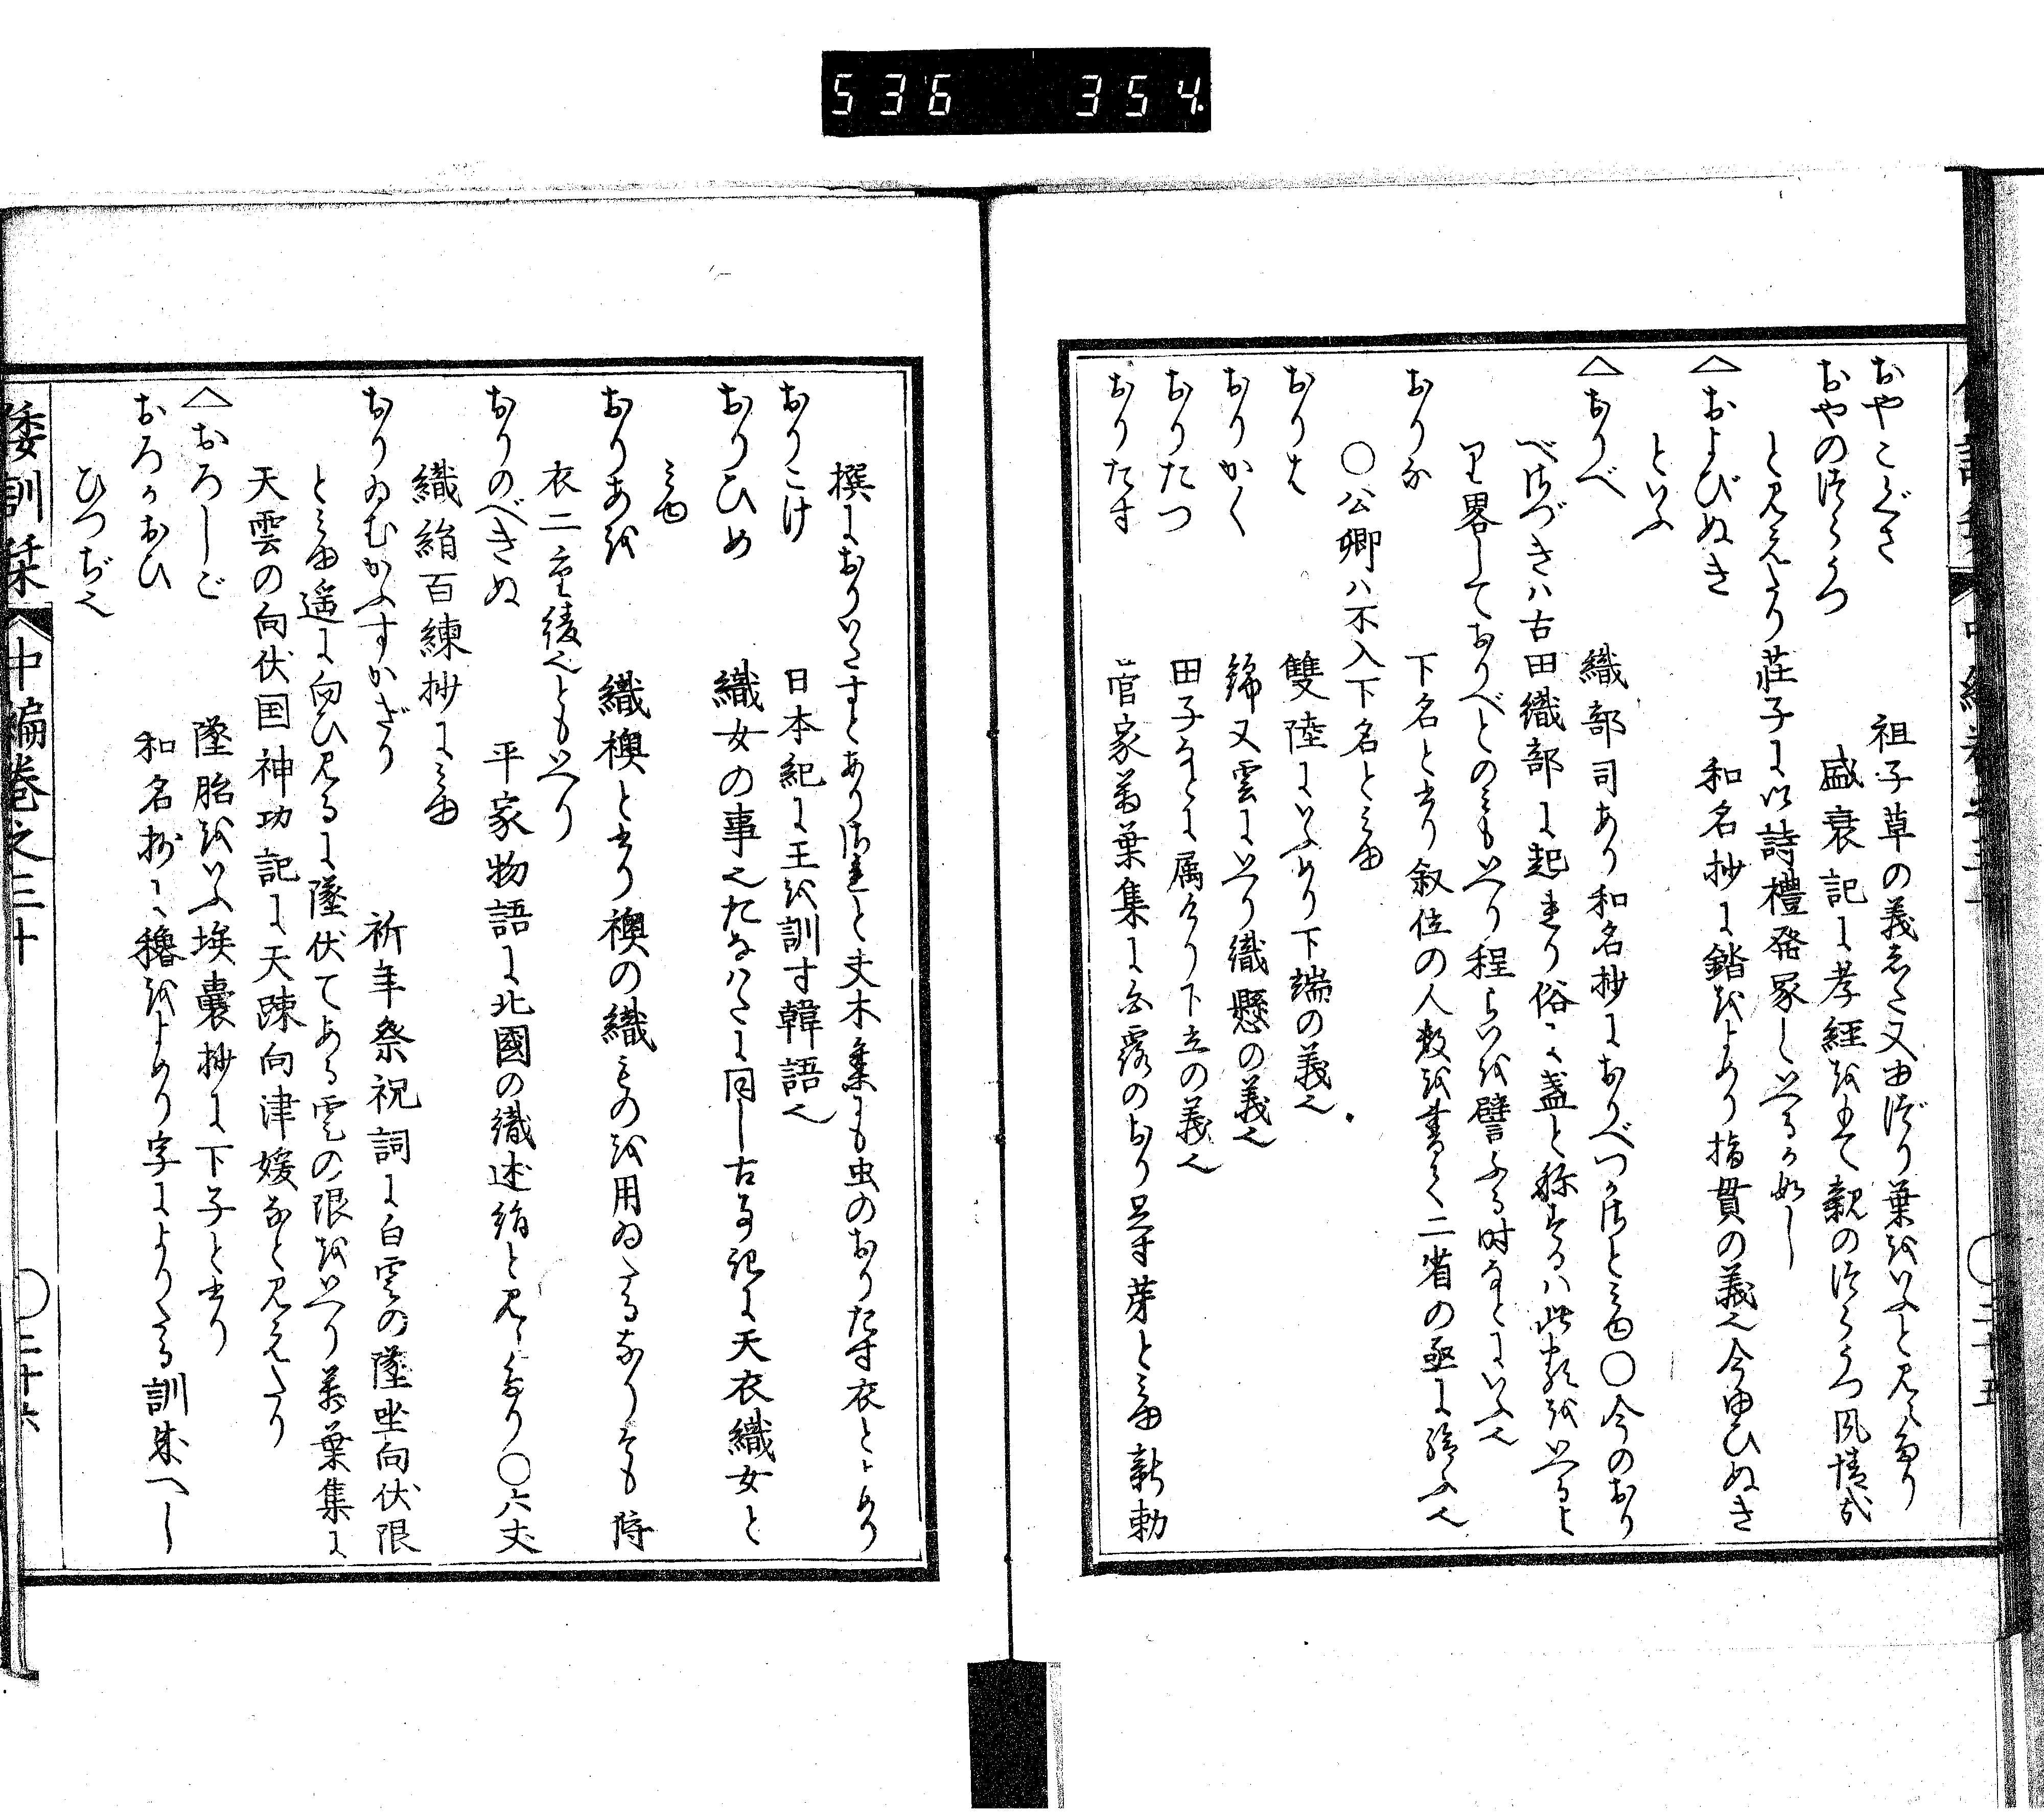 536 354
おやこぐさ 祖子草の義也又由づり葉をいふと見へたり
おやのけうやう 盛衰記に孝経をもて親のけうやう風情成
と見えたり荘子に以詩禮発冢といへるか如し
へおよびぬき 和名抄に錔をよめり指貫の義也今ゆびぬき
といふ
へおりべ 織部司あり和名抄におりべつかさとみゆ○今のおり
べ
さかづきハ古田織部に起れり俗に盞と称するハ此類をいへるを
り畧しておりべとのミもいへり程らいを譬ふる時などにいふ也
おりな 下名と書り叙位の人数を書て二省の丞に給ふ也
○公卿ハ不入下名とミゆ
おりは 雙陸にいふめり下端の義也
おりかく 錦又雲にいへり織懸の義也
おりたつ 田子などに属けり下立の義也
おりたす 菅家萬葉集に白露のおり足す芽とミゆ新勅
撰におりいたすとあり
夫木集にも虫のおりたす衣とよめり
おりこけ 日本紀に王を訓す韓語也
おりひめ 織女の事也たなばたに同し古事記に天衣織女と
ミゆ
おりあを 織襖と書り襖の織ものを用ゐたるなり
衣二重綾也ともいへり
おりのべきぬ 平家物語に北國の織述絹と見へたり○六丈
織絹百練抄にミゆ
おりゐむかふすかぎり 祈年祭祝詞に白雲の墜坐向伏限
とミゆ遥に向ひ見るに墜伏てある雲の限をいへり萬葉集に
天雲の向伏国神功記に天疎向津媛なと見えたり
へおろしご 墜胎をいふ埃嚢抄に下子と書り
おろかおひ 和名抄に穭をよめり字によりたる訓成へし
ひつぢ也
倭訓栞 中編巻之三十 ○二十六